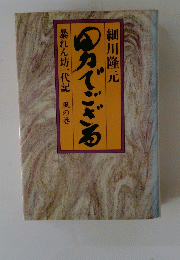 細川隆元
男でござる
暴れん坊一代記
風の巻